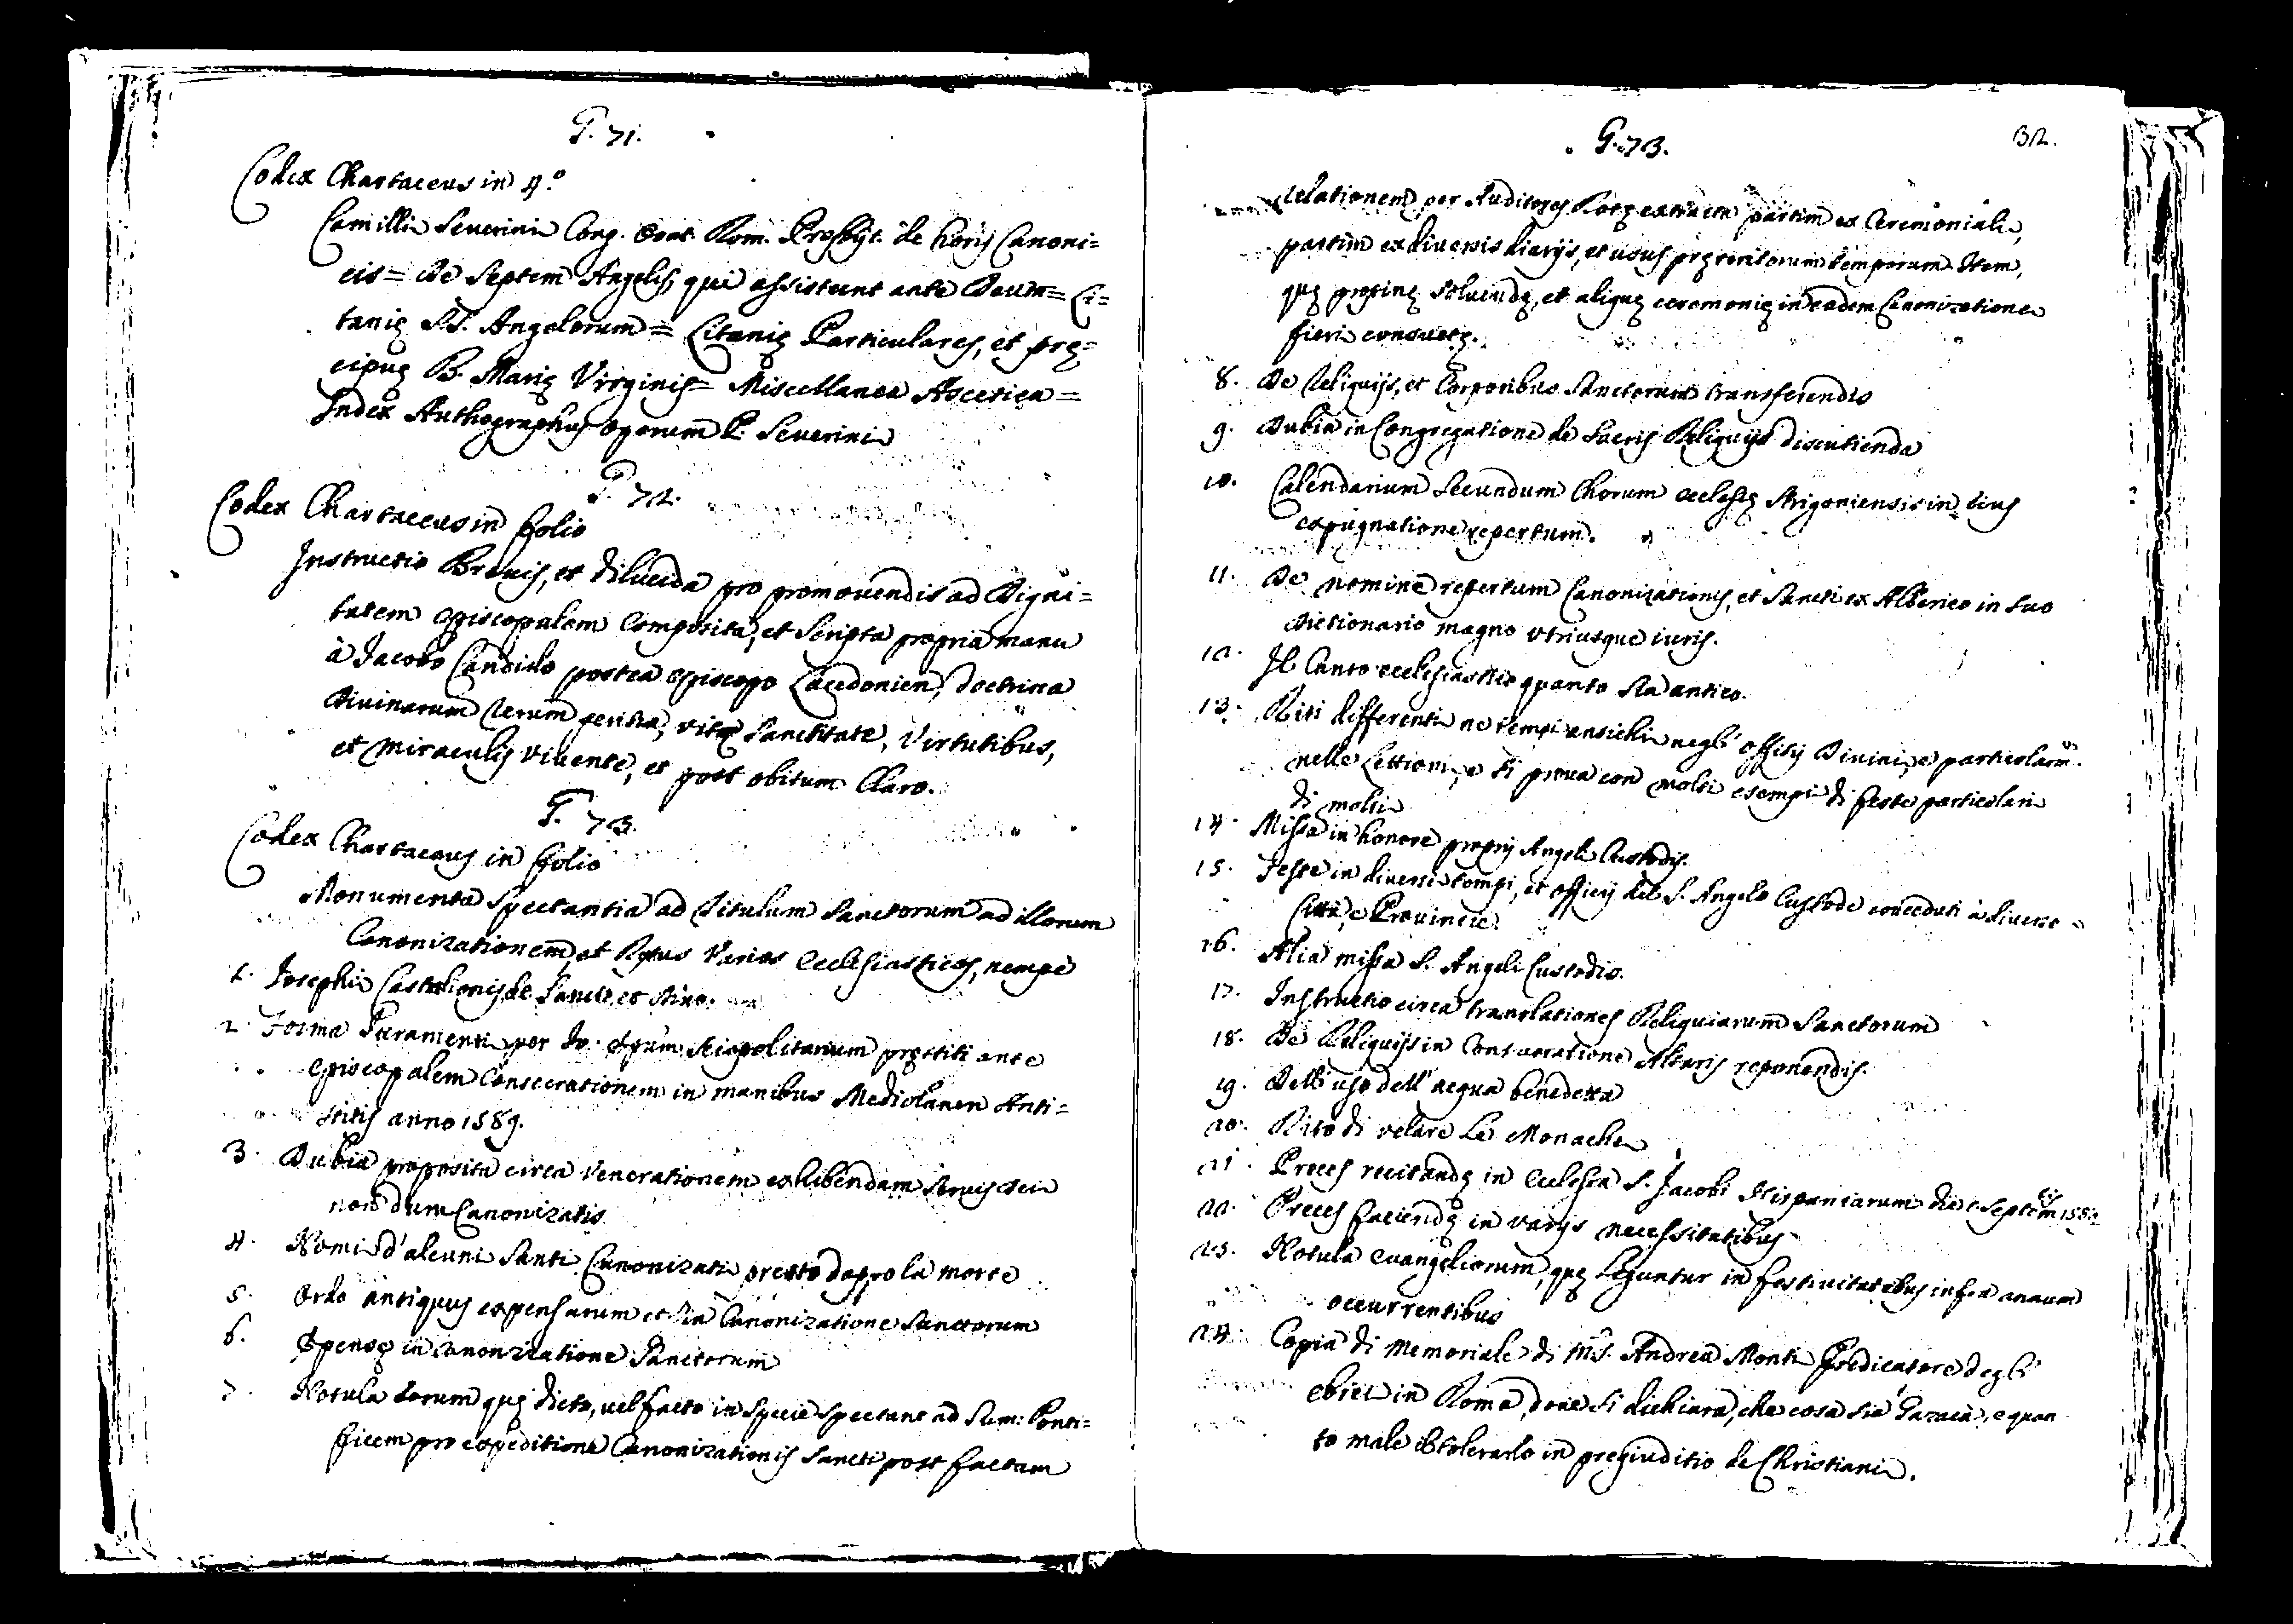 G. 71.
Codex Chartaceus in 4.o
Camilli Severini Cong. Orat. Rom. Presbyt. de horis Canoni=
cis = De Septem Angelis, qui assistunt ante Deum = Li=
tanię SS. Angelorum = Litanię Particulares, et prę=
cipuę B. Marię Virginis = Miscellanea Ascetica =
Index Authographus operum P. Severini
G. 72.
Codex Chartaceus in folio
Instructio Brevis, et dilucida pro promovendis ad Digni=
tatem Episcopalem Composita, et Scripta propria manu
à Jacobo Candido postea Episcopo Lacedonien, doctrina
Divinarum rerum peritia, vitę Sanctitate, Virtutibus,
et miraculis vivente, et post obitum Claro.
G. 73.
Codex Chartaceus in folio
Monumenta Spectantia ad titulum Sanctorum ad illorum
Canonizationem, et Rytus Varios Ecclesiasticos, nempe
1. Josephi Castalionis de Sancto, et Divo.
2. Forma Juramenti per Episcopalem pręstiti ante
Episcopalem Consecrationem in manibus Mediolanen Anti=
stitis anno 1589.
3. Dubia proposita circa Venerationem exhibendam Servis Dei
non dum Canonizatis
4. Nomi d'alcuni Santi Canonizati presto dopo la morte
5. Ordo antiquus expensarum et in Canonizatione Sanctorum
6. Expensę in canonizatione Sanctorum
7. Notula eorum quę dicto, vel facto in specie spectant ad Sum: Ponti=
ficem pro expeditione Canonizationis Sancti post factam
G. 73.
32.
relationem per Auditores Rotę extracta partim ex Ceremoniali,
partim ex diversis diarijs, et usus pręteritorum temporum. Item,
quę solvendę, et aliquę ceremonię in eadem Canonizatione
fieri consuetę.
8. De Reliquijs, et Corporibus Sanctorum transferendis
9. Dubia in Congregatione de Sacris Reliquijs discutienda
10. Calendarium Secundum Chorum Ecclesię Strigoniensis in eius
expugnatione repertum.
11. De nomine repertum Canonizationis, et Sancti ex Alberico in suo
dictionario magno utriusque iuris.
12. Il Canto ecclesiastico quanto sia antico.
13. Riti differenti ne tempi antichi negl'offitij Divini, e particolarm.
nelle Lettioni, e si prova con molti esempi di feste particolari
di molti
14. Missa in honore proprij Angeli Custodis.
15. Feste in diversi tempi, et officij del S. Angelo Custode conceduti à diverse
Città, e Provincie
16. Alia missa S. Angeli Custodis.
17. Instructio circa translationes Reliquiarum Sanctorum
18. De Reliquijs in Consecratione Altaris reponendis.
19. Dell'uso dell'acqua benedetta
20. Rito di velare le Monache
21. Preces recitandę in Ecclesia S. Jacobi Hispaniarum die Septem
22. Preces faciendę in varijs necessitatibus
23. Notula evangeliorum, quę leguntur in festivitatibus infra annum
occurrentibus
24. Copia di Memoriale di Ms. Andrea Monti Predicatore degl'
ebrei in Roma, dove si dichiara, che cosa sia Gazacà, e quan
to male il tolerarlo in pregiuditio de Christiani.